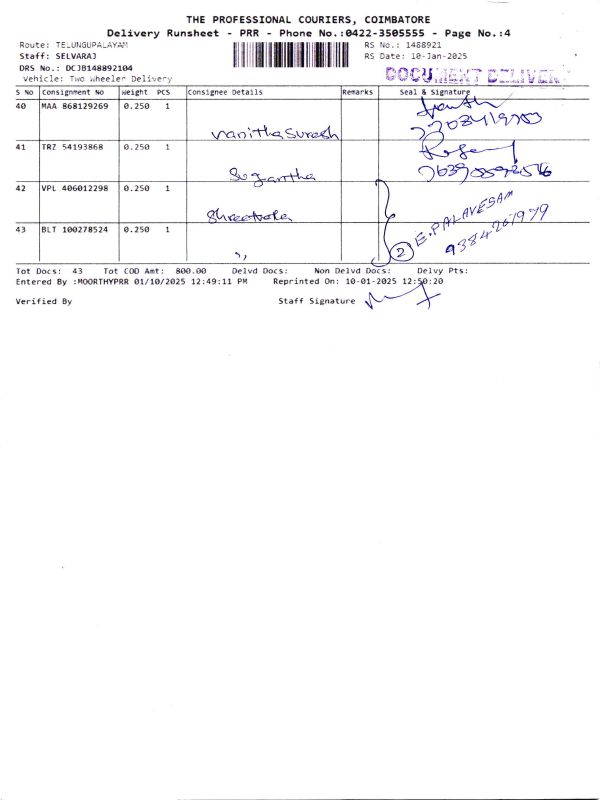 THE PROFESSIONAL COURIERS, COIMBATORE
Delivery Runsheet - PRR - Phone No.:0422-3505555 - Page No.:4
Route: TELUNGUPALAYAM RS No.: 1488921
Staff: SELVARAJ RS Date: 10-Jan-2025
DRS No.: DCJB148892104
Vehicle: Two Wheeler Delivery DOCUMENT DELIVERY
S No Consignment No Weight PCS Consignee Details Remarks Seal & Signature
40 MAA 868129269 0.250 1
Vanitha Suresh
41 TRZ 54193868 0.250 1
Sugantha
42 VPL 406012298 0.250 1
E.PALAVESAM
43 BLT 100278524 0.250 1
,, 2 9384267979
Tot Docs: 43 Tot COD Amt: 800.00 Delvd Docs: Non Delvd Docs: Delvy Pts:
Entered By :MOORTHYPRR 01/10/2025 12:49:11 PM Reprinted On: 10-01-2025 12:50:20
Verified By Staff Signature